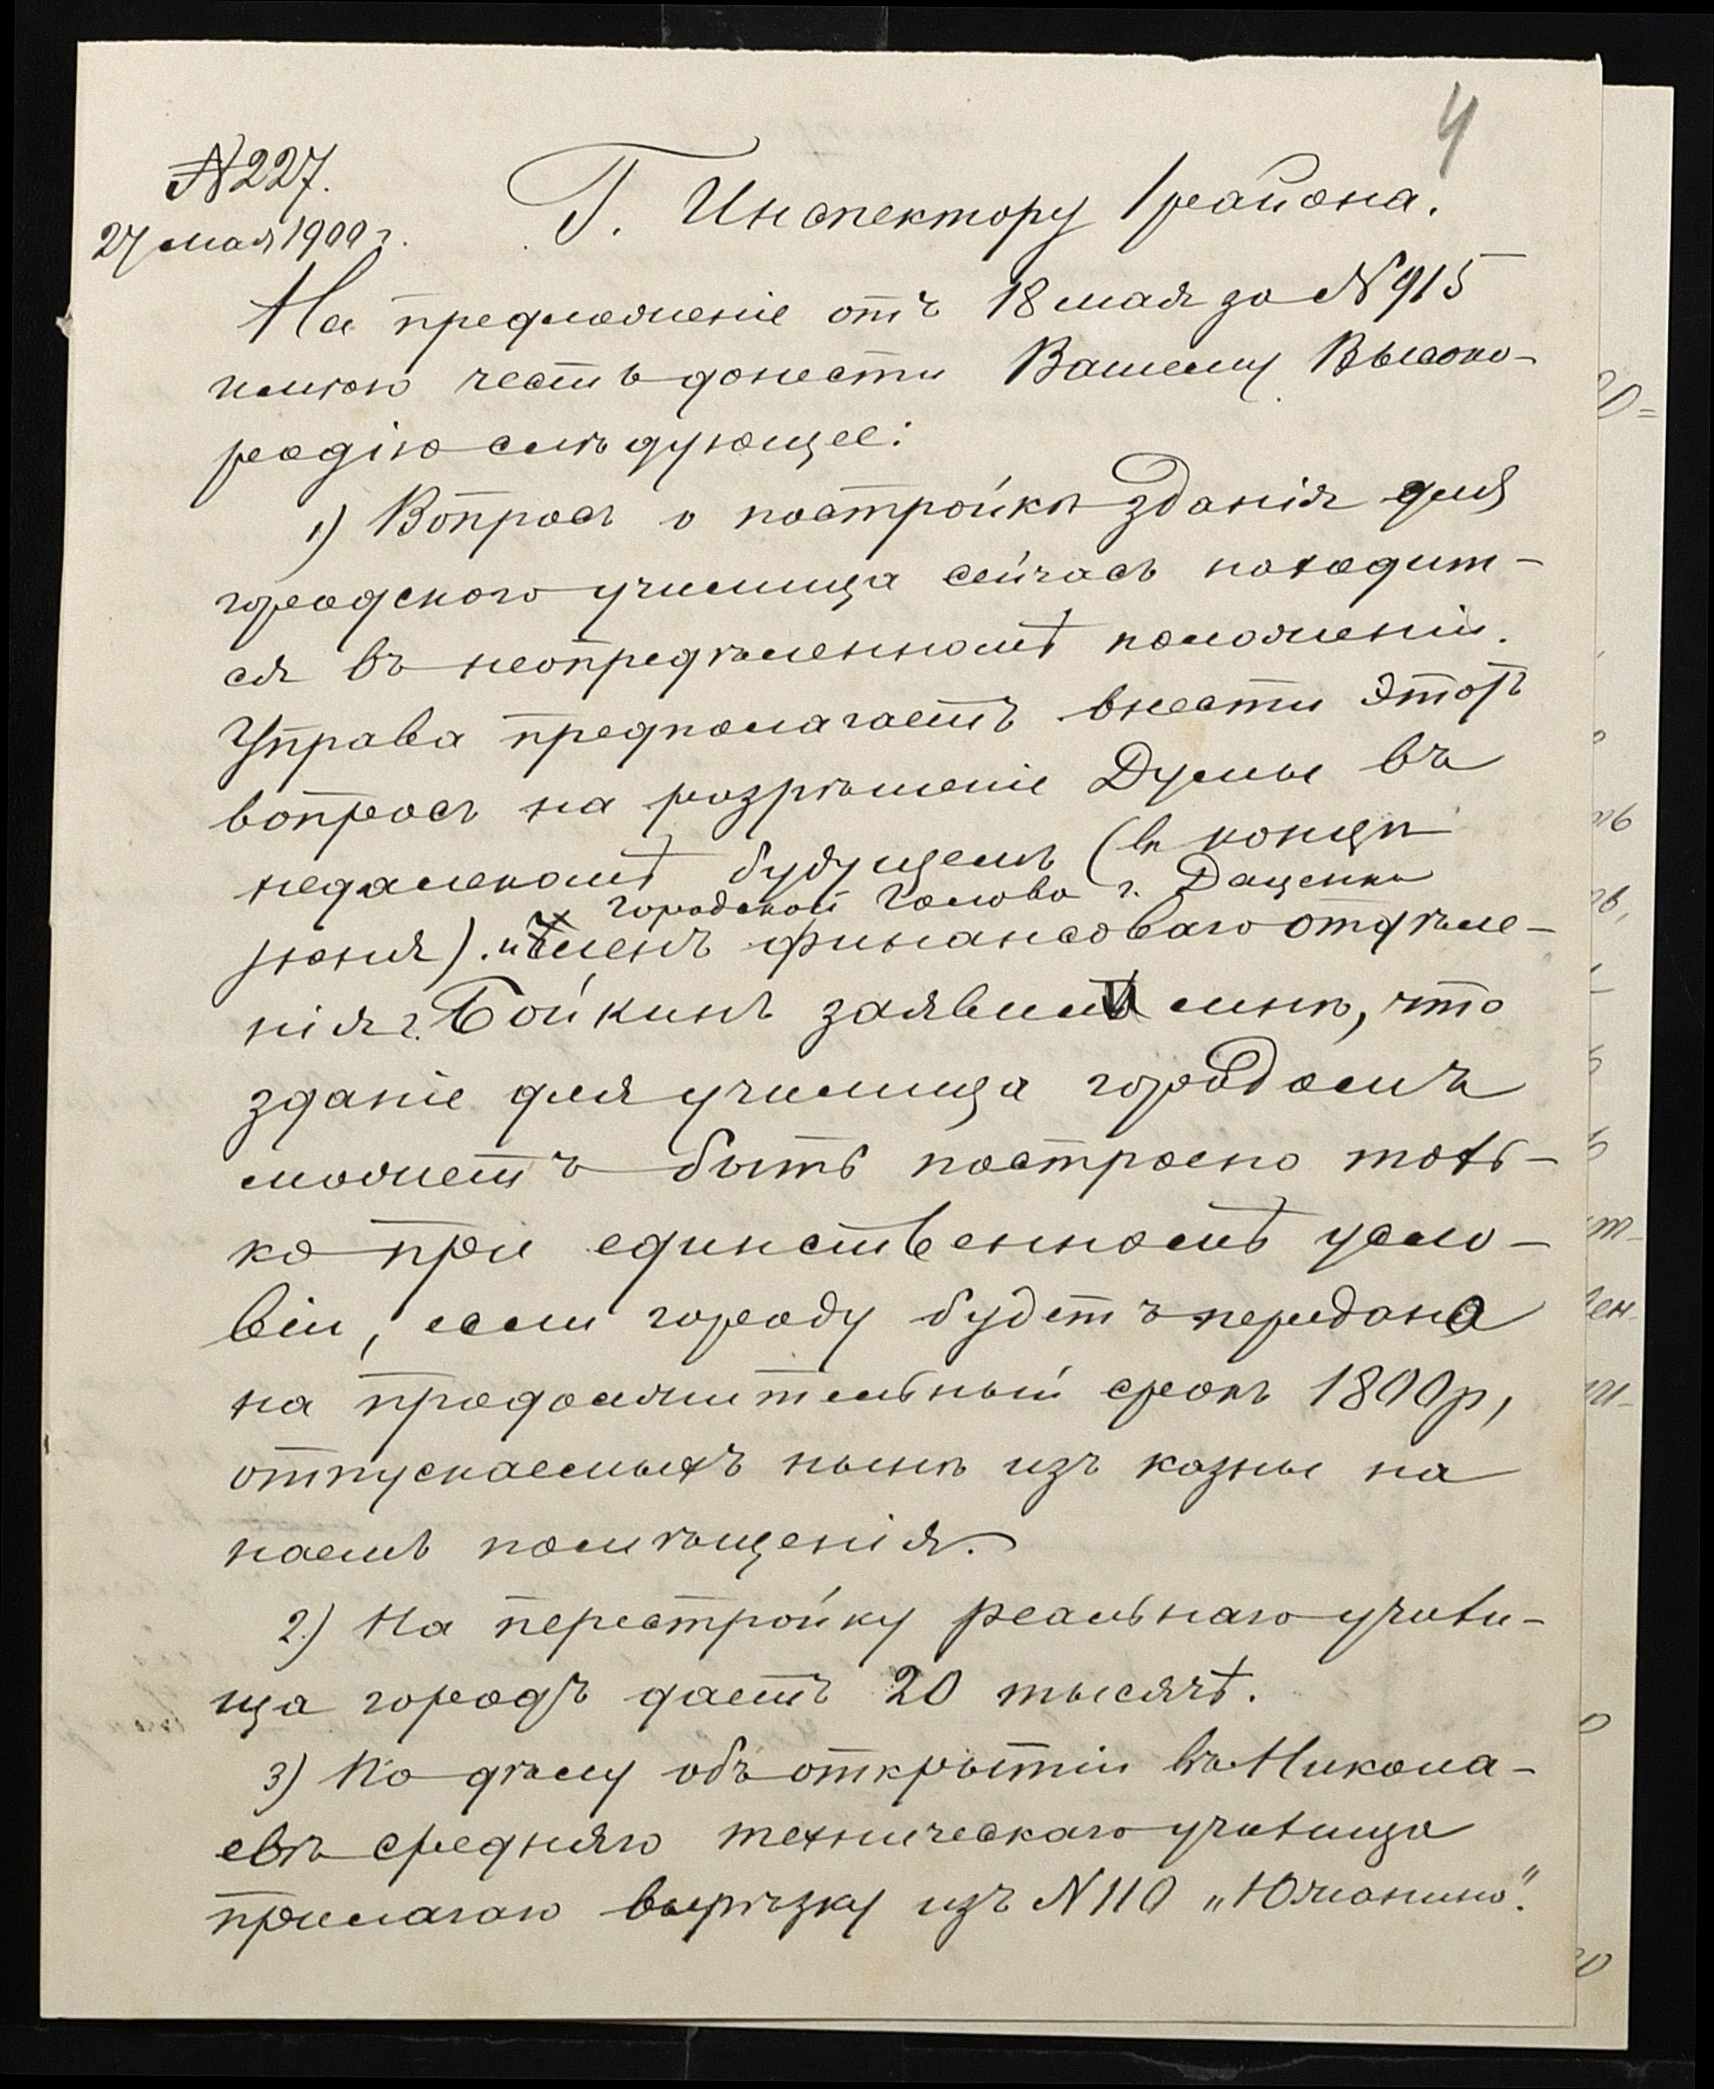 4
№ 227.
27 мая 1900 г.
Г. Инспектору 1 района.
На предложеніе отъ 18 мая за № 915
имѣю честь донести Вашему Высоко-
родію слѣдующее:
1) Вопросъ о постройкѣ зданія для
городского училища сейчасъ находит-
ся въ неопредѣленномъ положеніи.
Управа предполагаетъ внести этотъ
вопросъ на разрѣшеніе Думы въ
недалекомъ будущемъ (въ концѣ
городской голова г. Даценко
іюня). и Членъ финансоваго отдѣле-
нія г. Бойкинъ заявили мнѣ, что
зданіе для училища городомъ
можетъ быть построено толь-
ко при единственномъ усло-
віи, если городу будетъ передано
на продолжительный срокъ 1800 р,
отпускаемыхъ нынѣ изъ казны на
наемъ помѣщенія.
2) На перестройку реальнаго учили-
ща городъ даетъ 20 тысячъ.
3) По дѣлу объ открытіи въ Никола-
евѣ средняго техническаго училища
прилагаю вырѣзку изъ № 110 „Южанина".